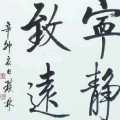 寧静
致遠
辛卯